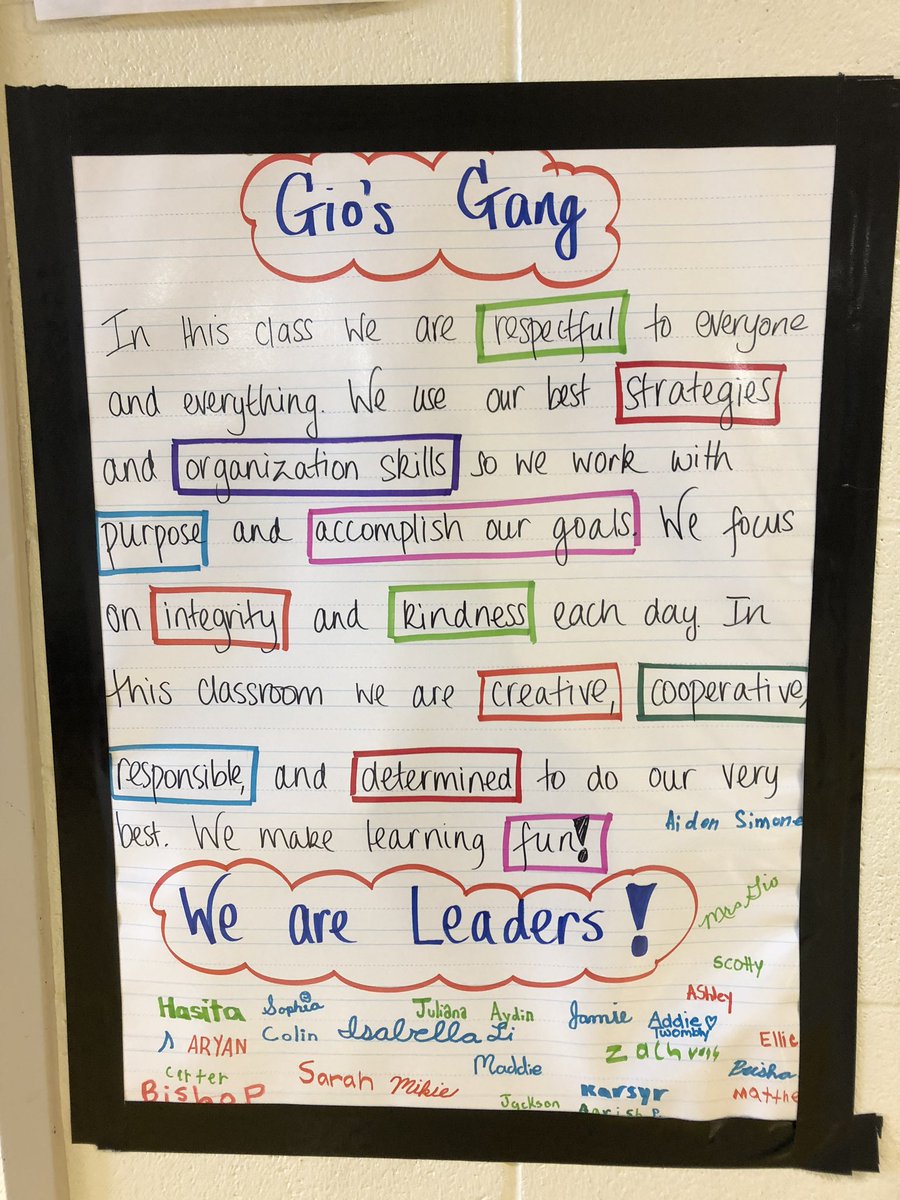 Gio's Gang
In this class we are respectful to everyone
and everything. We use our best strategies
and organization skills so we work with
purpose and accomplish our goals. We focus
on integrity and kindness each day. In
this classroom we are creative, cooperative,
responsible, and determined to do our very
best. We make learning fun!
Aiden Simone
We are Leaders!
Mrs Gio
Scotty
Ashley
Hasita Sophia Juliana Aydin Jamie Addie Twombly
ARYAN Colin Isabella Li Zach Ellie
Carter Maddie
Bishop Sarah Mikie Karsyr Matthe
Jackson Aarish P.